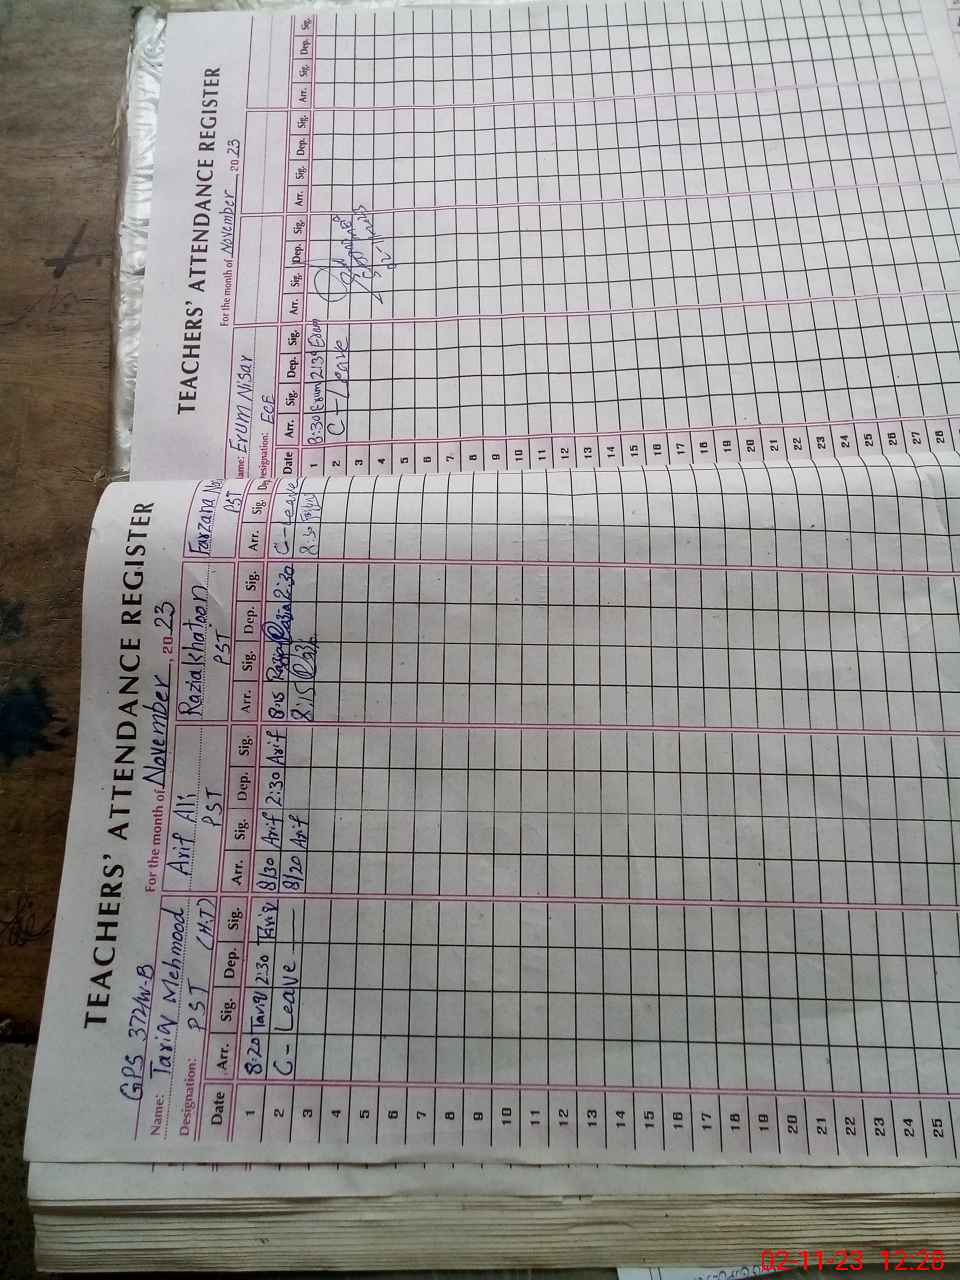 TEACHERS' ATTENDANCE REGISTER
GPS 372/W-B
For the month of November, 2023
Name: Tariq Mehmood Arif Ali Razia Khatoon Farzana
Designation: PST (H.T) PST PST PST
Date Arr. Sig. Dep. Sig. Arr. Sig. Dep. Sig. Arr. Sig. Dep. Sig. Arr. Sig.
1 8:20 Tariq 2:30 Tariq 8/30 Arif 2:30 Arif 8:15 Razia Razia 2:30 C-Leave
2 C - Leave 8/20 Arif 8:15 Razia 8:30
3
4
5
6
7
8
9
10
11
12
13
14
15
16
17
18
19
20
21
22
23
24
25
TEACHERS' ATTENDANCE REGISTER
For the month of November 2023
ame: Erum Nisar
esignation: ECE
Date Arr. Sig. Dep. Sig. Arr. Sig. Dep. Sig. Arr. Sig. Dep. Sig. Arr. Sig. Dep. Sig.
1 8:30 Erum 2:30 Erum
2 C - Leave
3
4
5
6
7
8
9
10
11
12
13
14
15
16
17
18
19
20
21
22
23
24
25
26
27
28
02-11-23 12:28